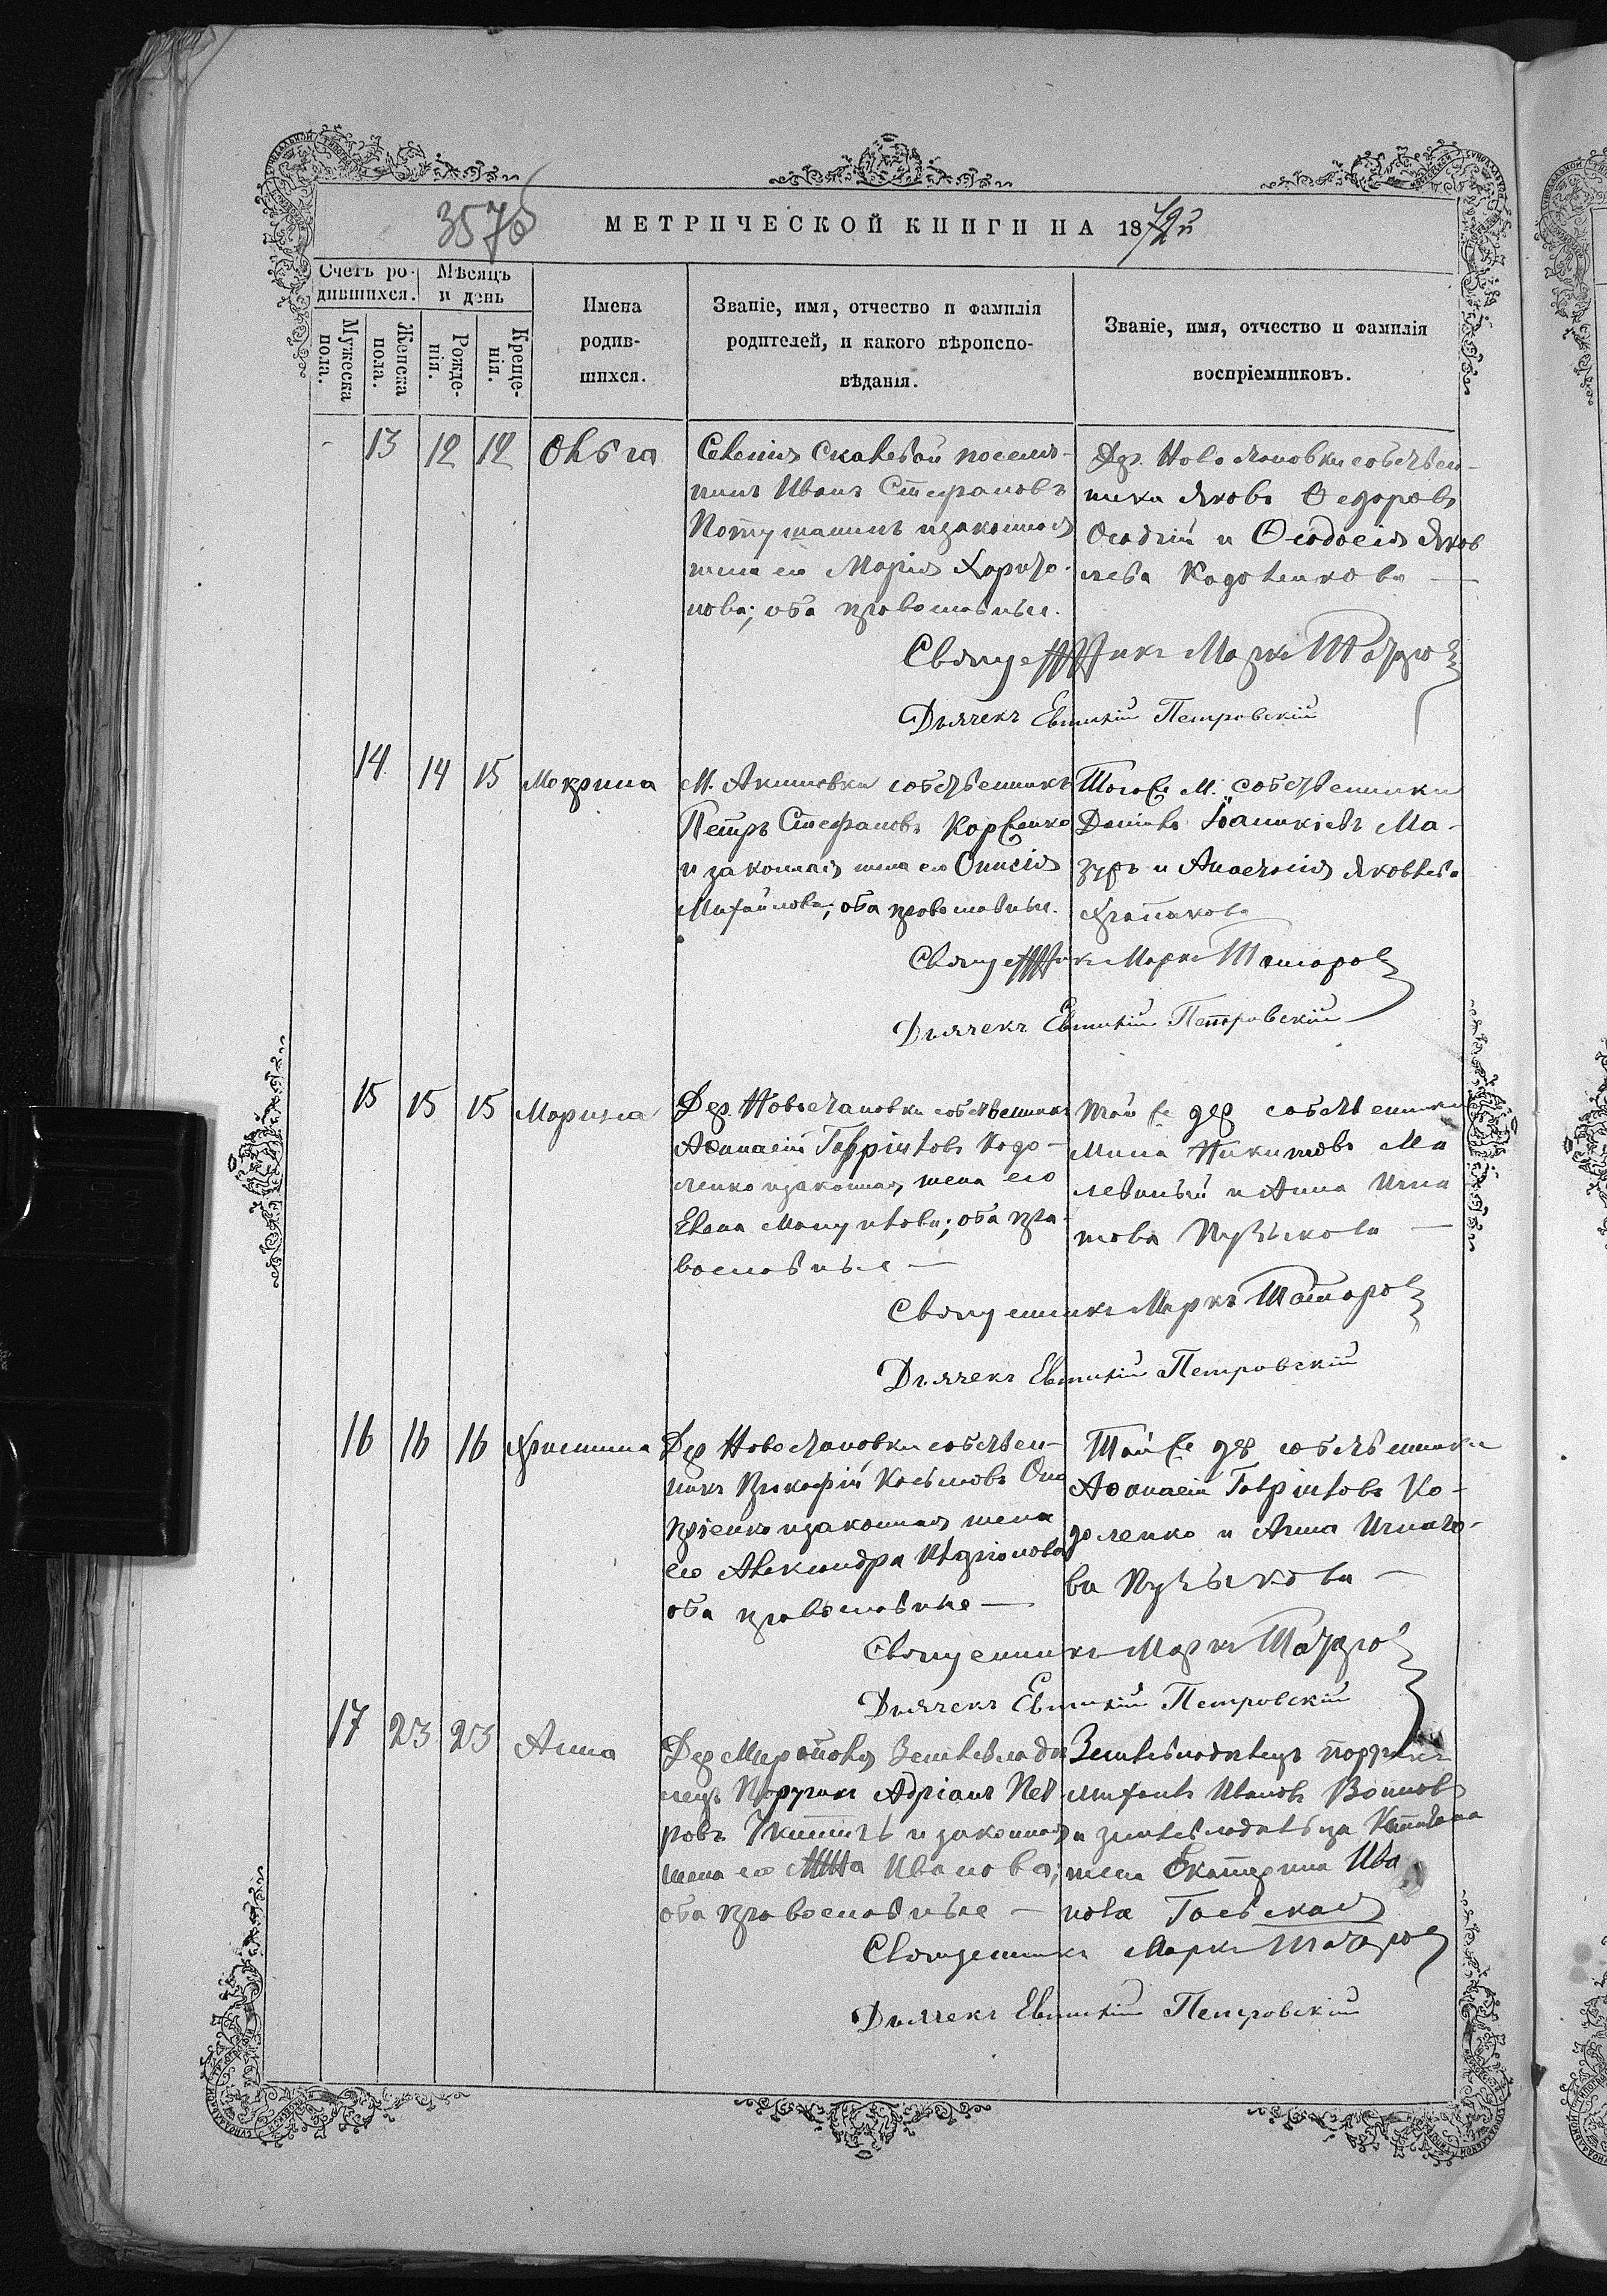 3575
МЕТРИЧЕСКОЙ КНИГИ НА 1872й
Счетъ ро-
дившихся.
Мѣсяцъ
и день
Мужеска
пола.
Женска
пола.
Рожде-
нія.
Креще-
нія.
Имена
родив-
шихся.
Званіе, имя, отчество и фамилія
родителей, и какого вѣроиспо-
вѣданія.
Званіе, имя, отчество и фамилія
воспріемниковъ.
13 12 12 Ольга
Селенія Скалевой поселя-
нинъ Иванъ Стефановъ
и законная
жена его Марія Харито-
нова; оба православные.
Дер. Новостановки собствен-
ника Яковъ Ѳедоровъ
Осадчій и Ѳеодосія Яков
лева Кодоленкова
Священникъ Маркъ Татаро
Дьячекъ Евтихій Петровскій
14 14 15 Макрина
М. собственникъ
Петръ Стефановъ Корженко
и законная жена его Онисія
Михайлова; оба православные.
Того же М. собственники
Даніилъ Іоаникіевъ Ма-
зуръ и Анастасія Яковлева
Священникъ Маркъ Татаровъ
Дьячекъ Евтихій Петровскій
15 15 15 Марина
Дер. Новостановки собственникъ
Аѳанасій Гавріиловъ Кодо-
ленко и законная жена его
Елена Мануилова; оба пра-
вославные
Той же дер собственники
Мина Никитовъ Ма
леваный и Анна Игна
това Пузыкова
Священникъ Маркъ Татаро
Дьячекъ Евтихій Петровскій
16 16 16 Христина
Дер Новостановки собствен-
никъ Прокофій Косьмовъ Она
пріенко и законная жена
его Александра Иларіонова
оба православные
Той же дер собственники
Аѳанасій Гавріиловъ Ко-
доленко и Анна Игнато-
ва Пузыкова
Священникъ Маркъ Татаро
Дьячекъ Евтихій Петровскій
17 23 23 Анна
Дер Землевладѣ
лецъ Поручикъ Адріанъ Пет
ровъ и законная
жена его Анна Иванова;
оба православные
Землевладѣлецъ поручикъ
Иванов Воинов
и землевладѣлица Капитана
жена Екатерина Ива
нова Гаевская
Священникъ Маркъ Татаровъ
Дьячекъ Евтихій Петровскій